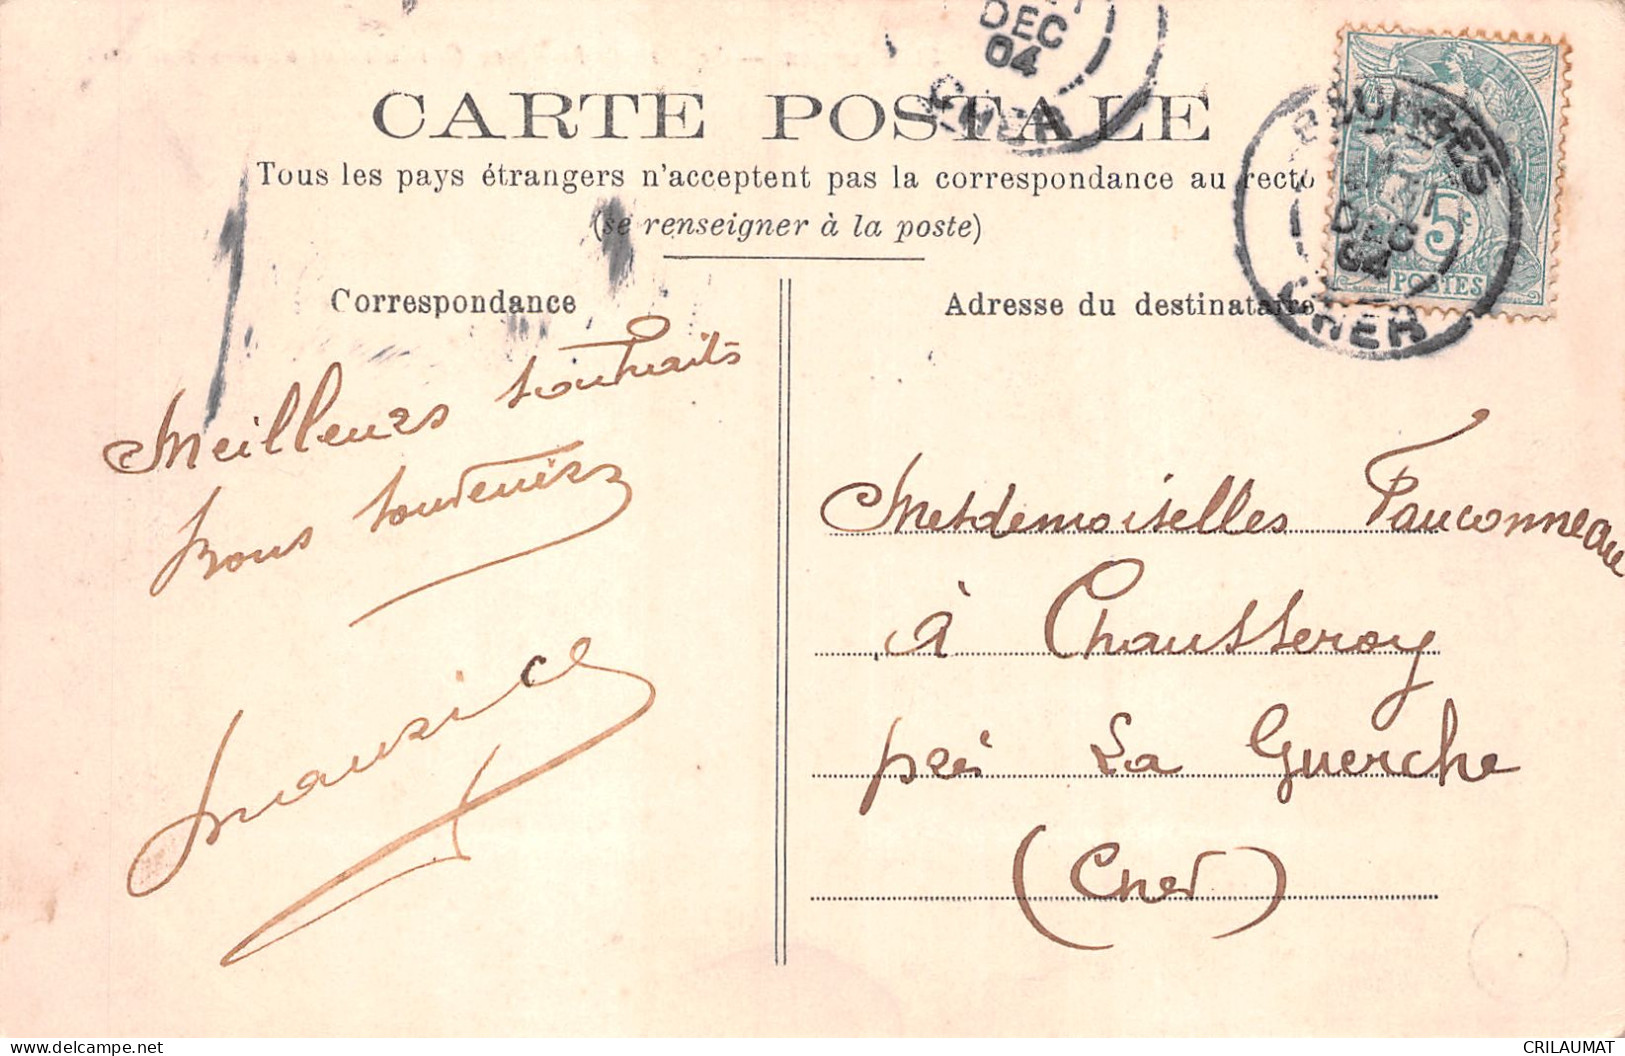 CARTE POSTALE
Tous les pays étrangers n'acceptent pas la correspondance au recto
(se renseigner à la poste)
Correspondance
Adresse du destinataire
DEC
04
CHER
BOURGES
DEC
04
CHER
5c
POSTES
Meilleurs souhaits
Bons souvenirs
Maurice
Mesdemoiselles Fauconneau
à Chausseroy
près La Guerche
(Cher)
www.delcampe.net
CRILAUMAT